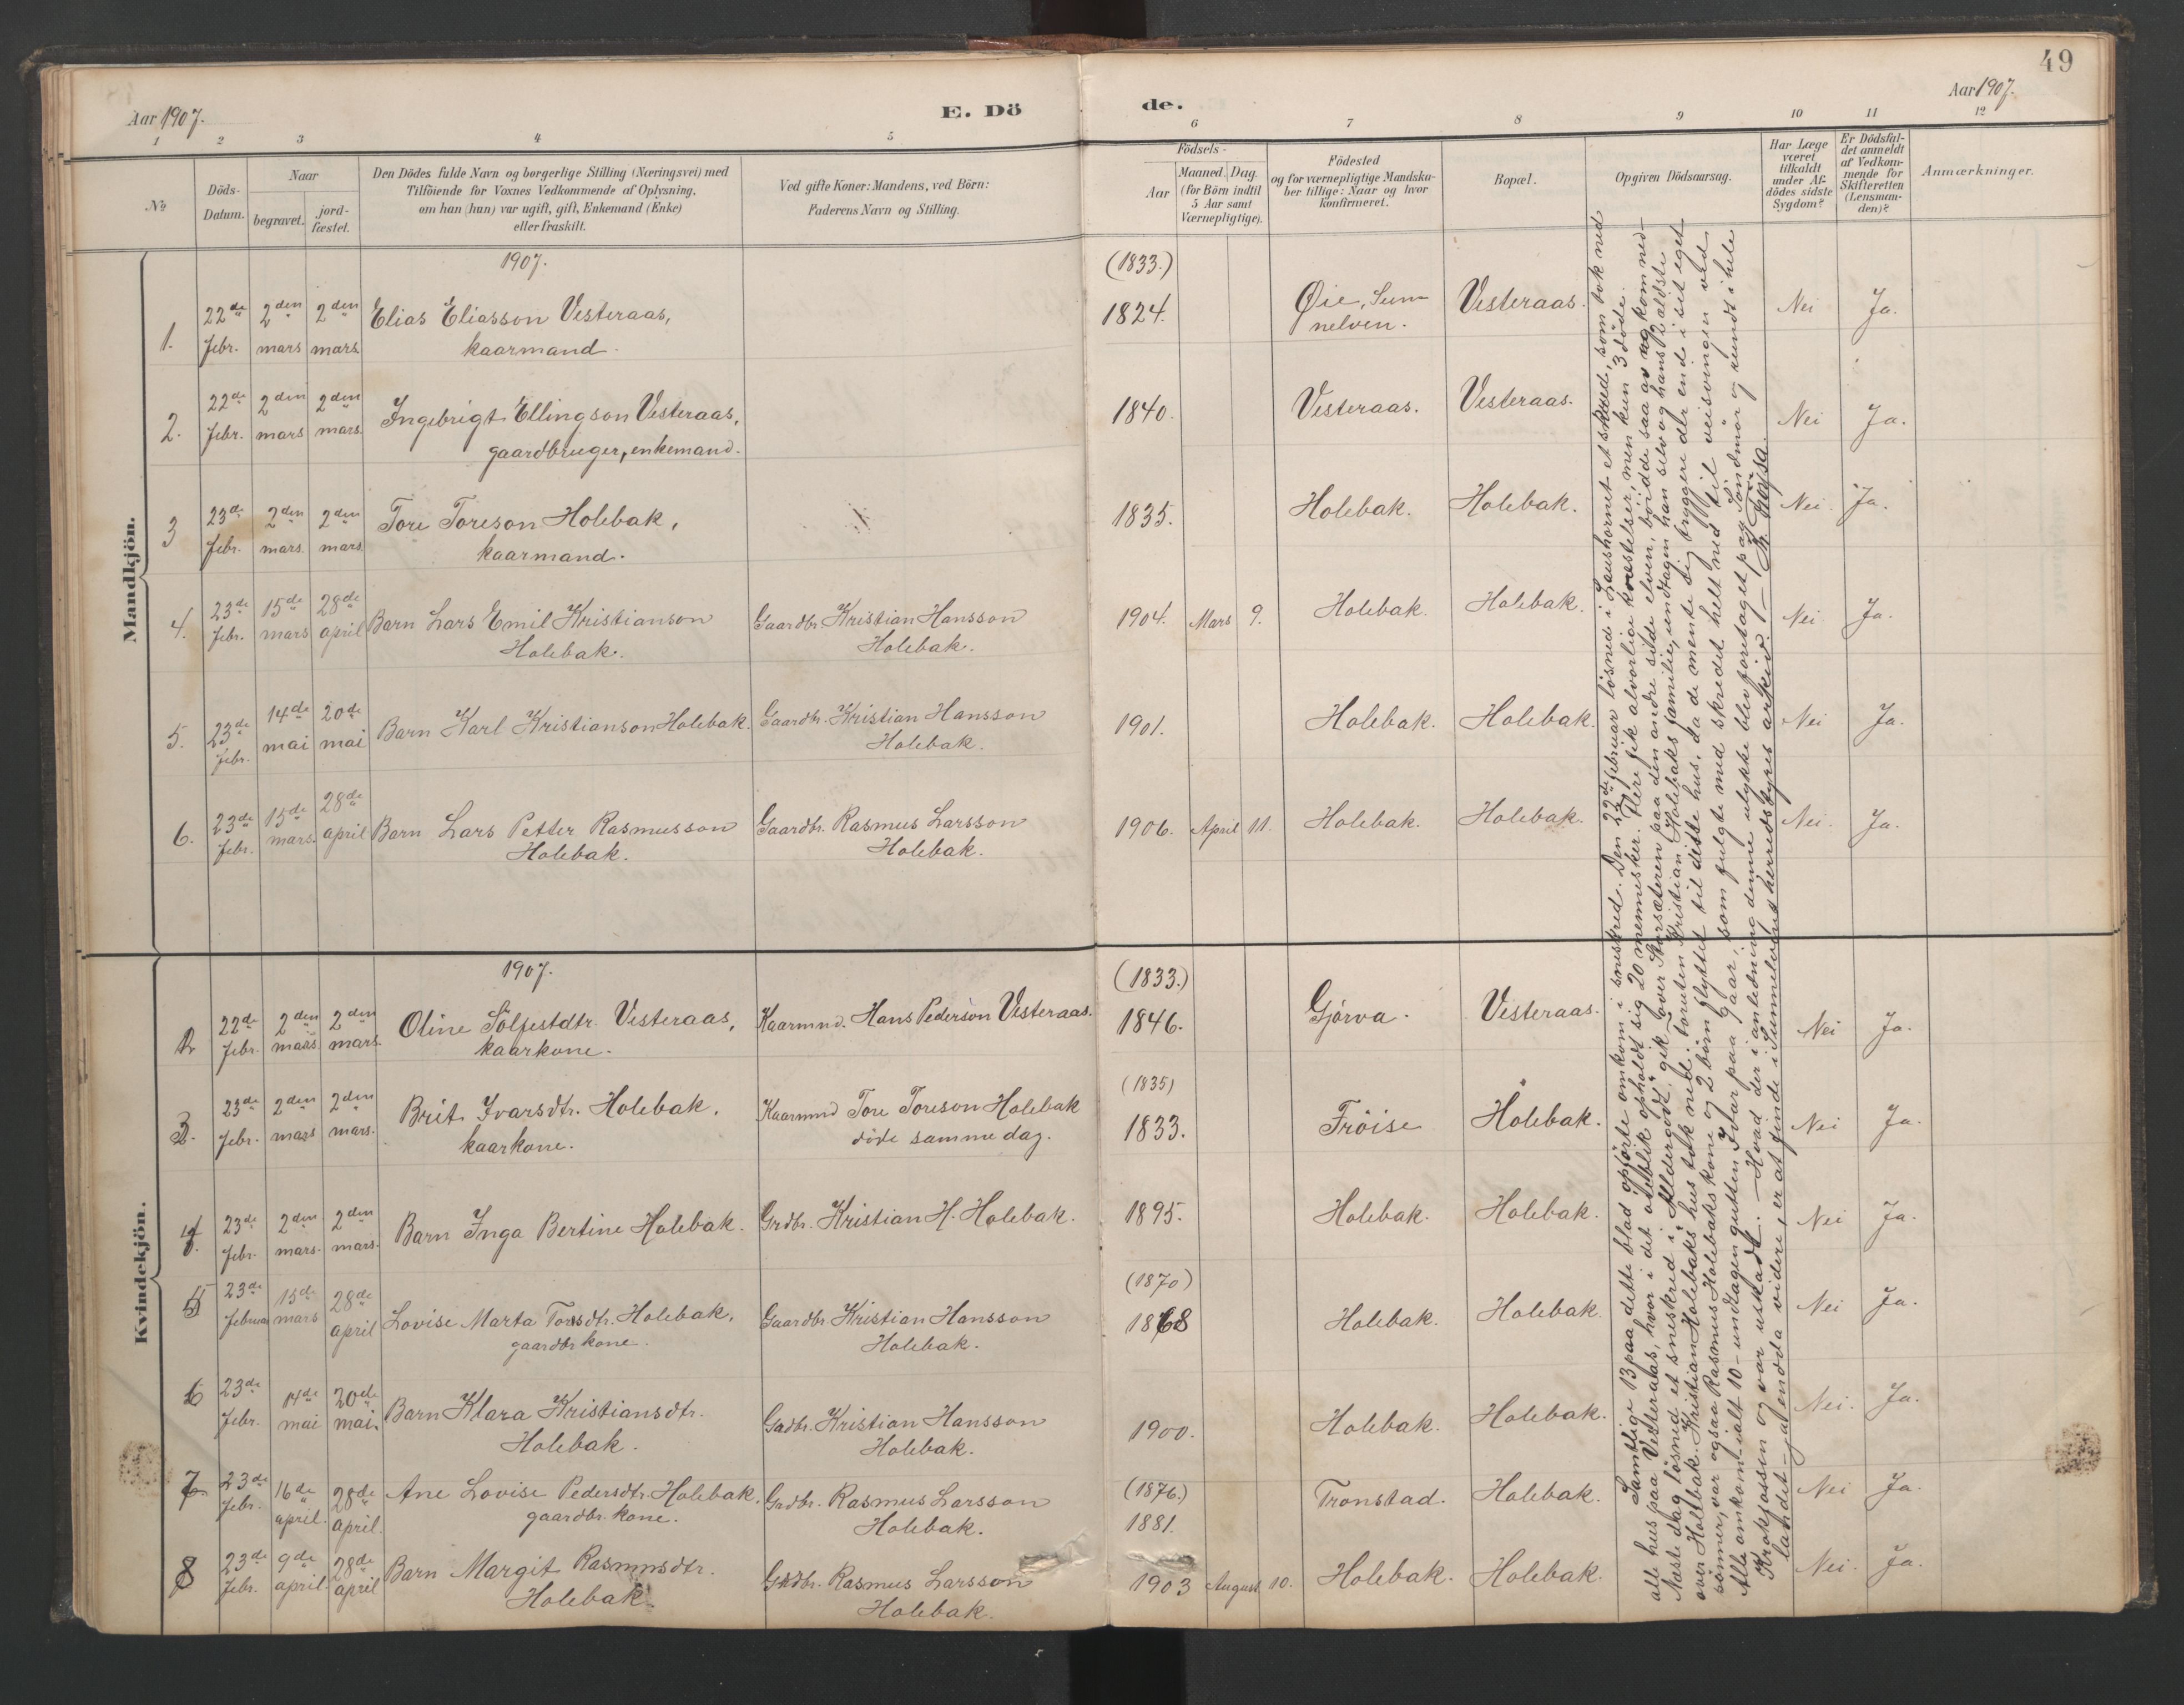 49
Aar 1907.
E. Dö
de.
Aar 1907.
1 2 3 4 5 6 7 8 9 10 11 12
No
Döds-
Datum.
Naar
begravet.
jord-
fæstet.
Den Dödes fulde Navn og borgerlige Stilling (Næringsvei) med
Tilföiende for Voxnes Vedkommende af Oplysning,
om han (hun) var ugift, gift, Enkemand (Enke)
eller fraskilt.
Ved gifte Koner: Mandens, ved Börn:
Faderens Navn og Stilling.
Födsels-
Aar
Maaned. Dag.
(for Börn indtil
5 Aar samt
Værnepligtige).
Födested
og for værnepligtige Mandsku-
ber tillige: Naar og hvor
konfirmeret.
Bopæl.
Opgiven Dödsaarsag.
Har Læge
været
tilkaldt
under Af-
dödes sidste
Sygdom?
Er Dödsfal-
det anmeldt
af Vedkom-
mende for
Skifteretten
(Lensman-
den)?
Anmærkninger.
Mandkjön.
1907.
(1833.)
1. 22de Febr. 2den mars 2den mars. Elias Eliasson Vesteraas, kaarmand. 1824. Øie, Sunnelven. Vesteraas. Nei Ja.
2. 22de Febr. 2den mars 2den mars. Ingebrigt Ellingson Vesteraas, gaardbruger, enkemand. 1840. Vesteraas. Vesteraas. Nei Ja.
3 23de Febr. 2den mars. 2den mars. Tore Toreson Holebak, kaarmand. 1835. Holebak. Holebak. Nei. Ja.
4. 23de Febr. 15de mars 28de april Barn Lars Emil Kristianson Holebak. Gaardbr. Kristian Hansson Holebak. 1904. Mars 9. Holebak. Holebak. Nei Ja.
5. 23de Febr. 14de mai 20de mai Barn Karl Kristianson Holebak. Gaardbr. Kristian Hansson Holebak. 1901. Holebak. Holebak. Nei Ja.
6. 23de Febr. 15de mars. 28de april Barn Lars Petter Rasmusson Holebak. Gaardbr. Rasmus Larsson Holebak. 1906. April 11. Holebak. Holebak. Nei. Ja.
Kvindekjön.
1907.
(1833.)
2 22de Febr. 2den mars. 2den mars. Oline Solfestdtr. Vesteraas, kaarkone. Kaarmnd. Hans Pederson Vesteraas. 1846. Gjørva. Vesteraas. Nei Ja.
(1835)
3. 23de Febr. 2den mars 2den mars. Brit Ivarsdtr. Holebak, kaarkone. Kaarmnd Tore Toreson Holebak döde samme dag. 1833. Fröise Holebak. Nei Ja.
4. 23de Febr. 2den mars. 2den mars. Barn Inga Bertine Holebak. Grdbr. Kristian H. Holebak. 1895. Holebak. Holebak. Nei Ja.
(1870)
5 23de Februar 15de mars 28de april Lovise Marta Torsdtr. Holebak, gaardbr. kone. Gaardbr. Kristian Hansson Holebak. 1868 Holebak. Holebak. Nei Ja.
6 23de Febr. 14de mai 20de mai. Barn Klara Kristiansdtr. Holebak. Gadbr. Kristian Hansson Holebak. 1900. Holebak. Holebak. Nei. Ja.
(1876.)
7. 23de Febr. 16de april. 28de april. Ane Lovise Pedersdtr. Holebak, gaardbr. kone. Gadbr. Rasmus Larsson Holebak. 1881. Tronstad. Holebak. Nei Ja.
8 23de Febr. 9de april. 28de april Barn Margit Rasmusdtr. Holebak. Grdbr. Rasmus Larsson Holebak. 1903 August 10. Holebak. Holebak. Nei. Ja.
Samtlige 13 paa dette blad opførte omkom i sneskred. Den 22de februar løsnede i Laushornet et skred, som tok ned
alle hus paa Vesteraas, hvor i det øieblik opholdt sig 20 mennesker. Flere fik alvorlige kvæstelser, men kun 3 døde.
Næste dag løsned et sneskred i „Aldergodt“, gik over Storsæteren paa den andre side elven, böidde saa av og kom ned
over Holebak. Kristian Holebaks hus tok ned. Foruten Kristian Holebaks familie, undtagen han selv og hans 2 ældste
sönner, var ogsaa Rasmus Holebaks kone og 2 børn flyttet til dette hus, da de mente sig tryggere der end i sit eget.
Alle omkom – ialt 10 – undtagen gutten Ivar paa 9 aar, som fulgte med skredet helt ned til veisvingen ved
Krokfossen og var uskadt. – Hvad der i anledning denne ulykke blev foretaget paa Söndmör og rundt i hele
landet – ja endda videre, er at finde i Sunnelvens herredsstyres arkiv. –